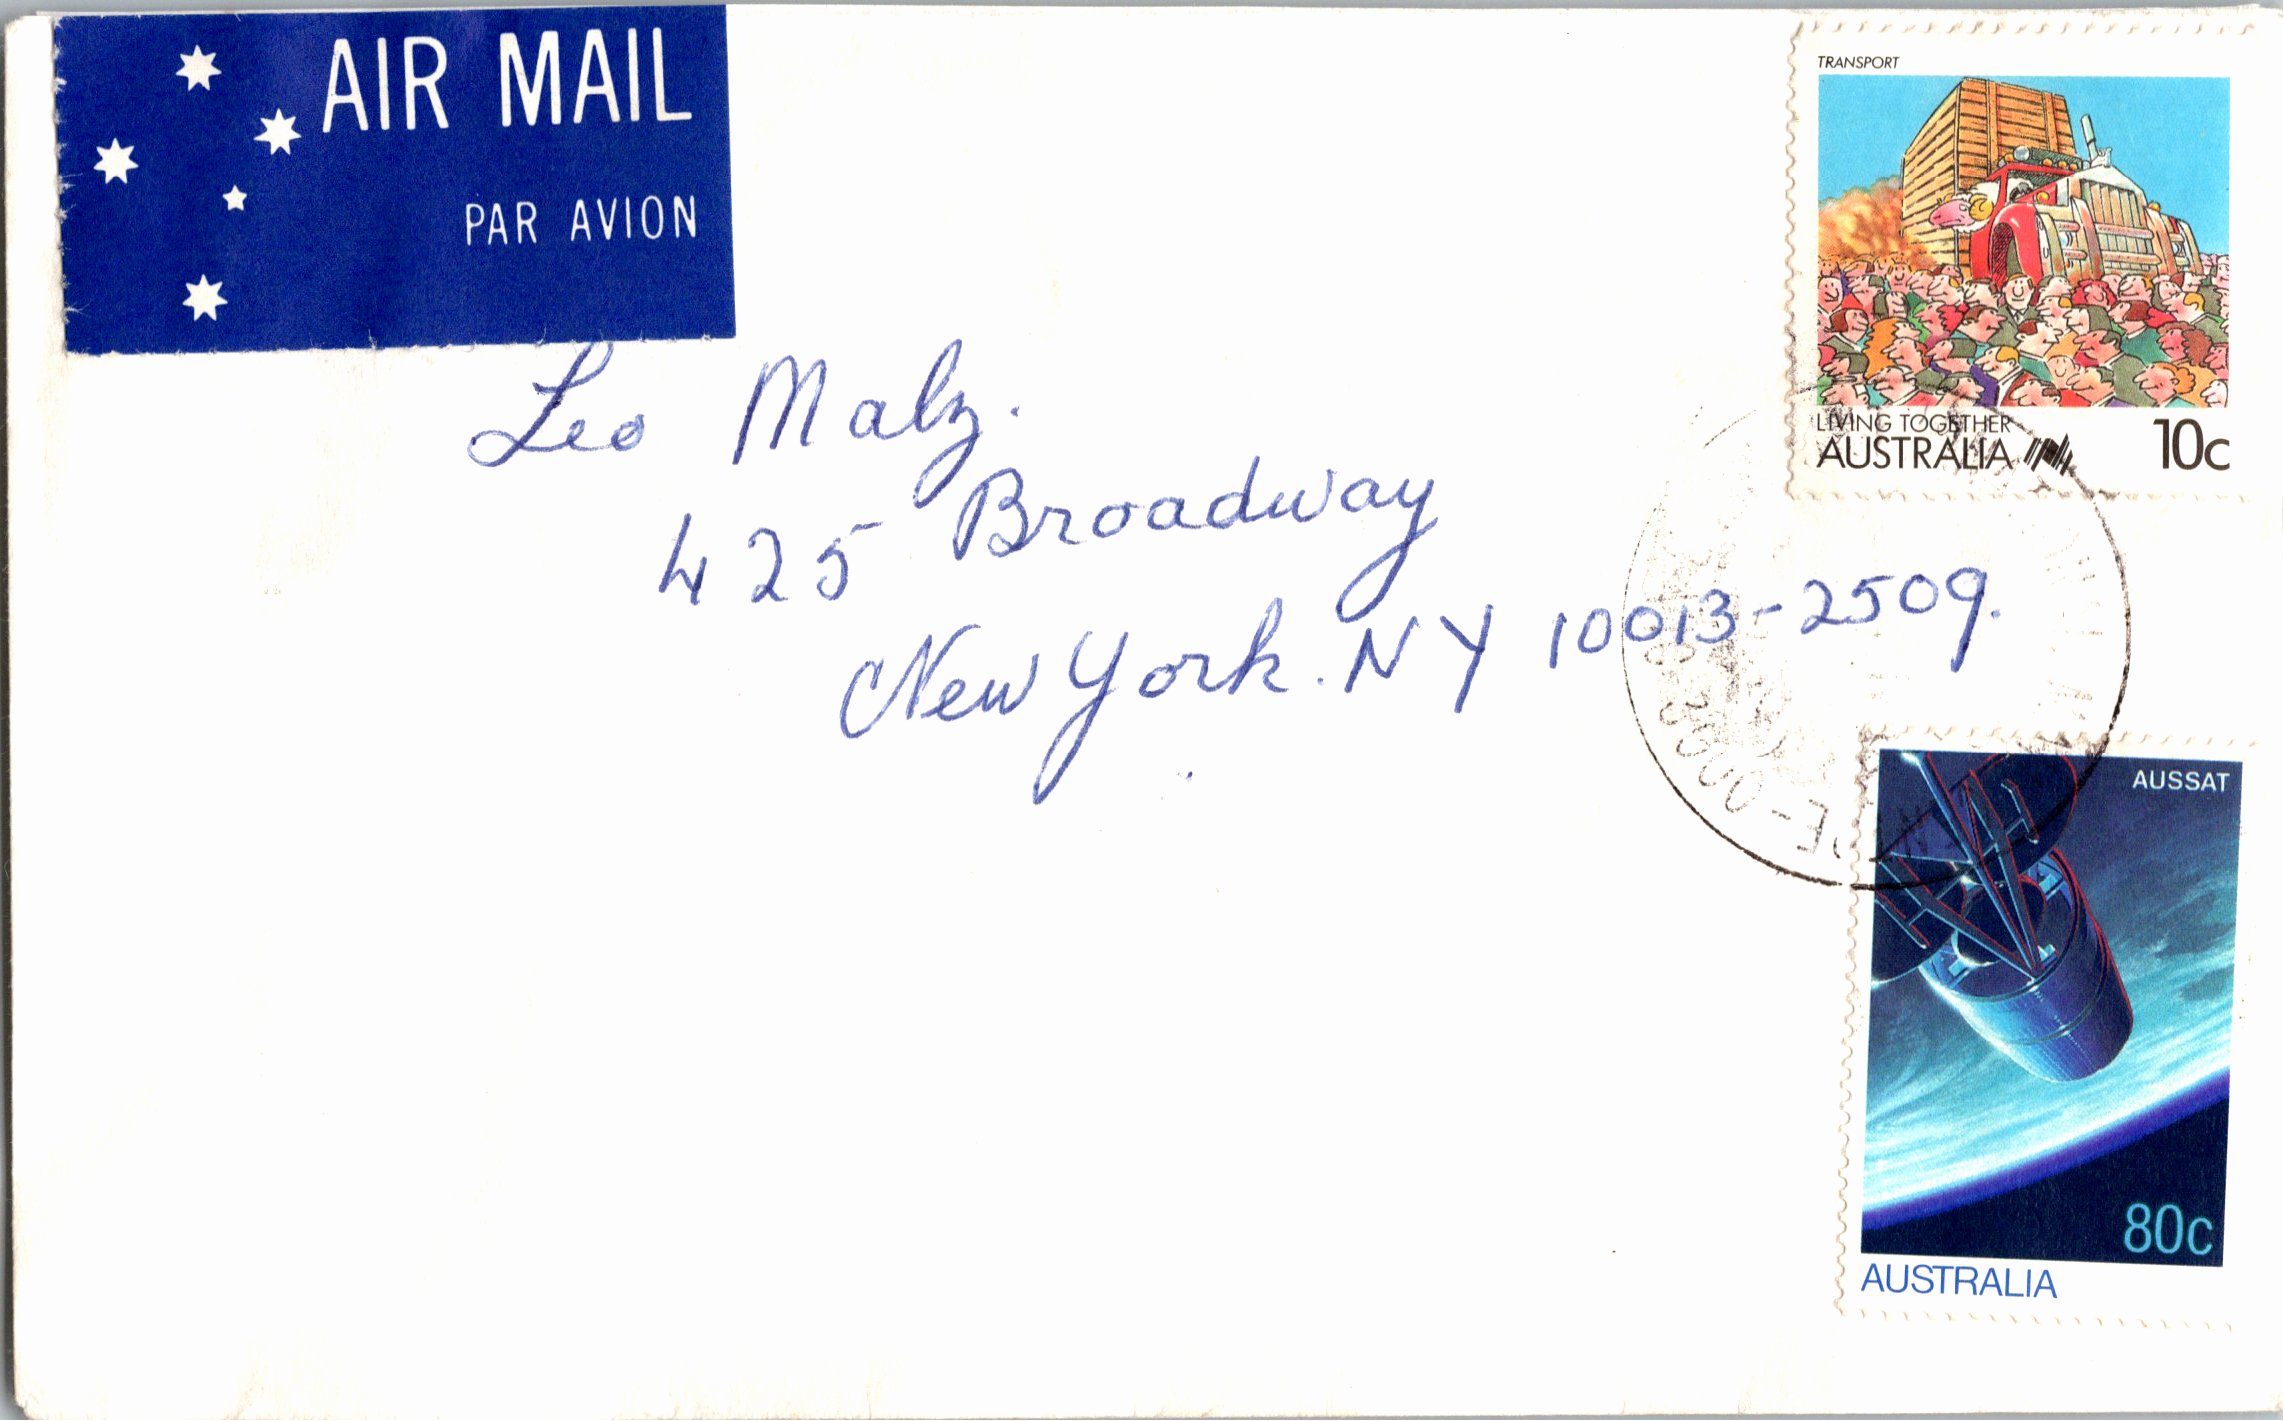 AIR MAIL
PAR AVION
TRANSPORT
LIVING TOGETHER
AUSTRALIA
10c
Leo Malz.
425 Broadway
New York. NY 10013-2509.
AUSSAT
80c
AUSTRALIA